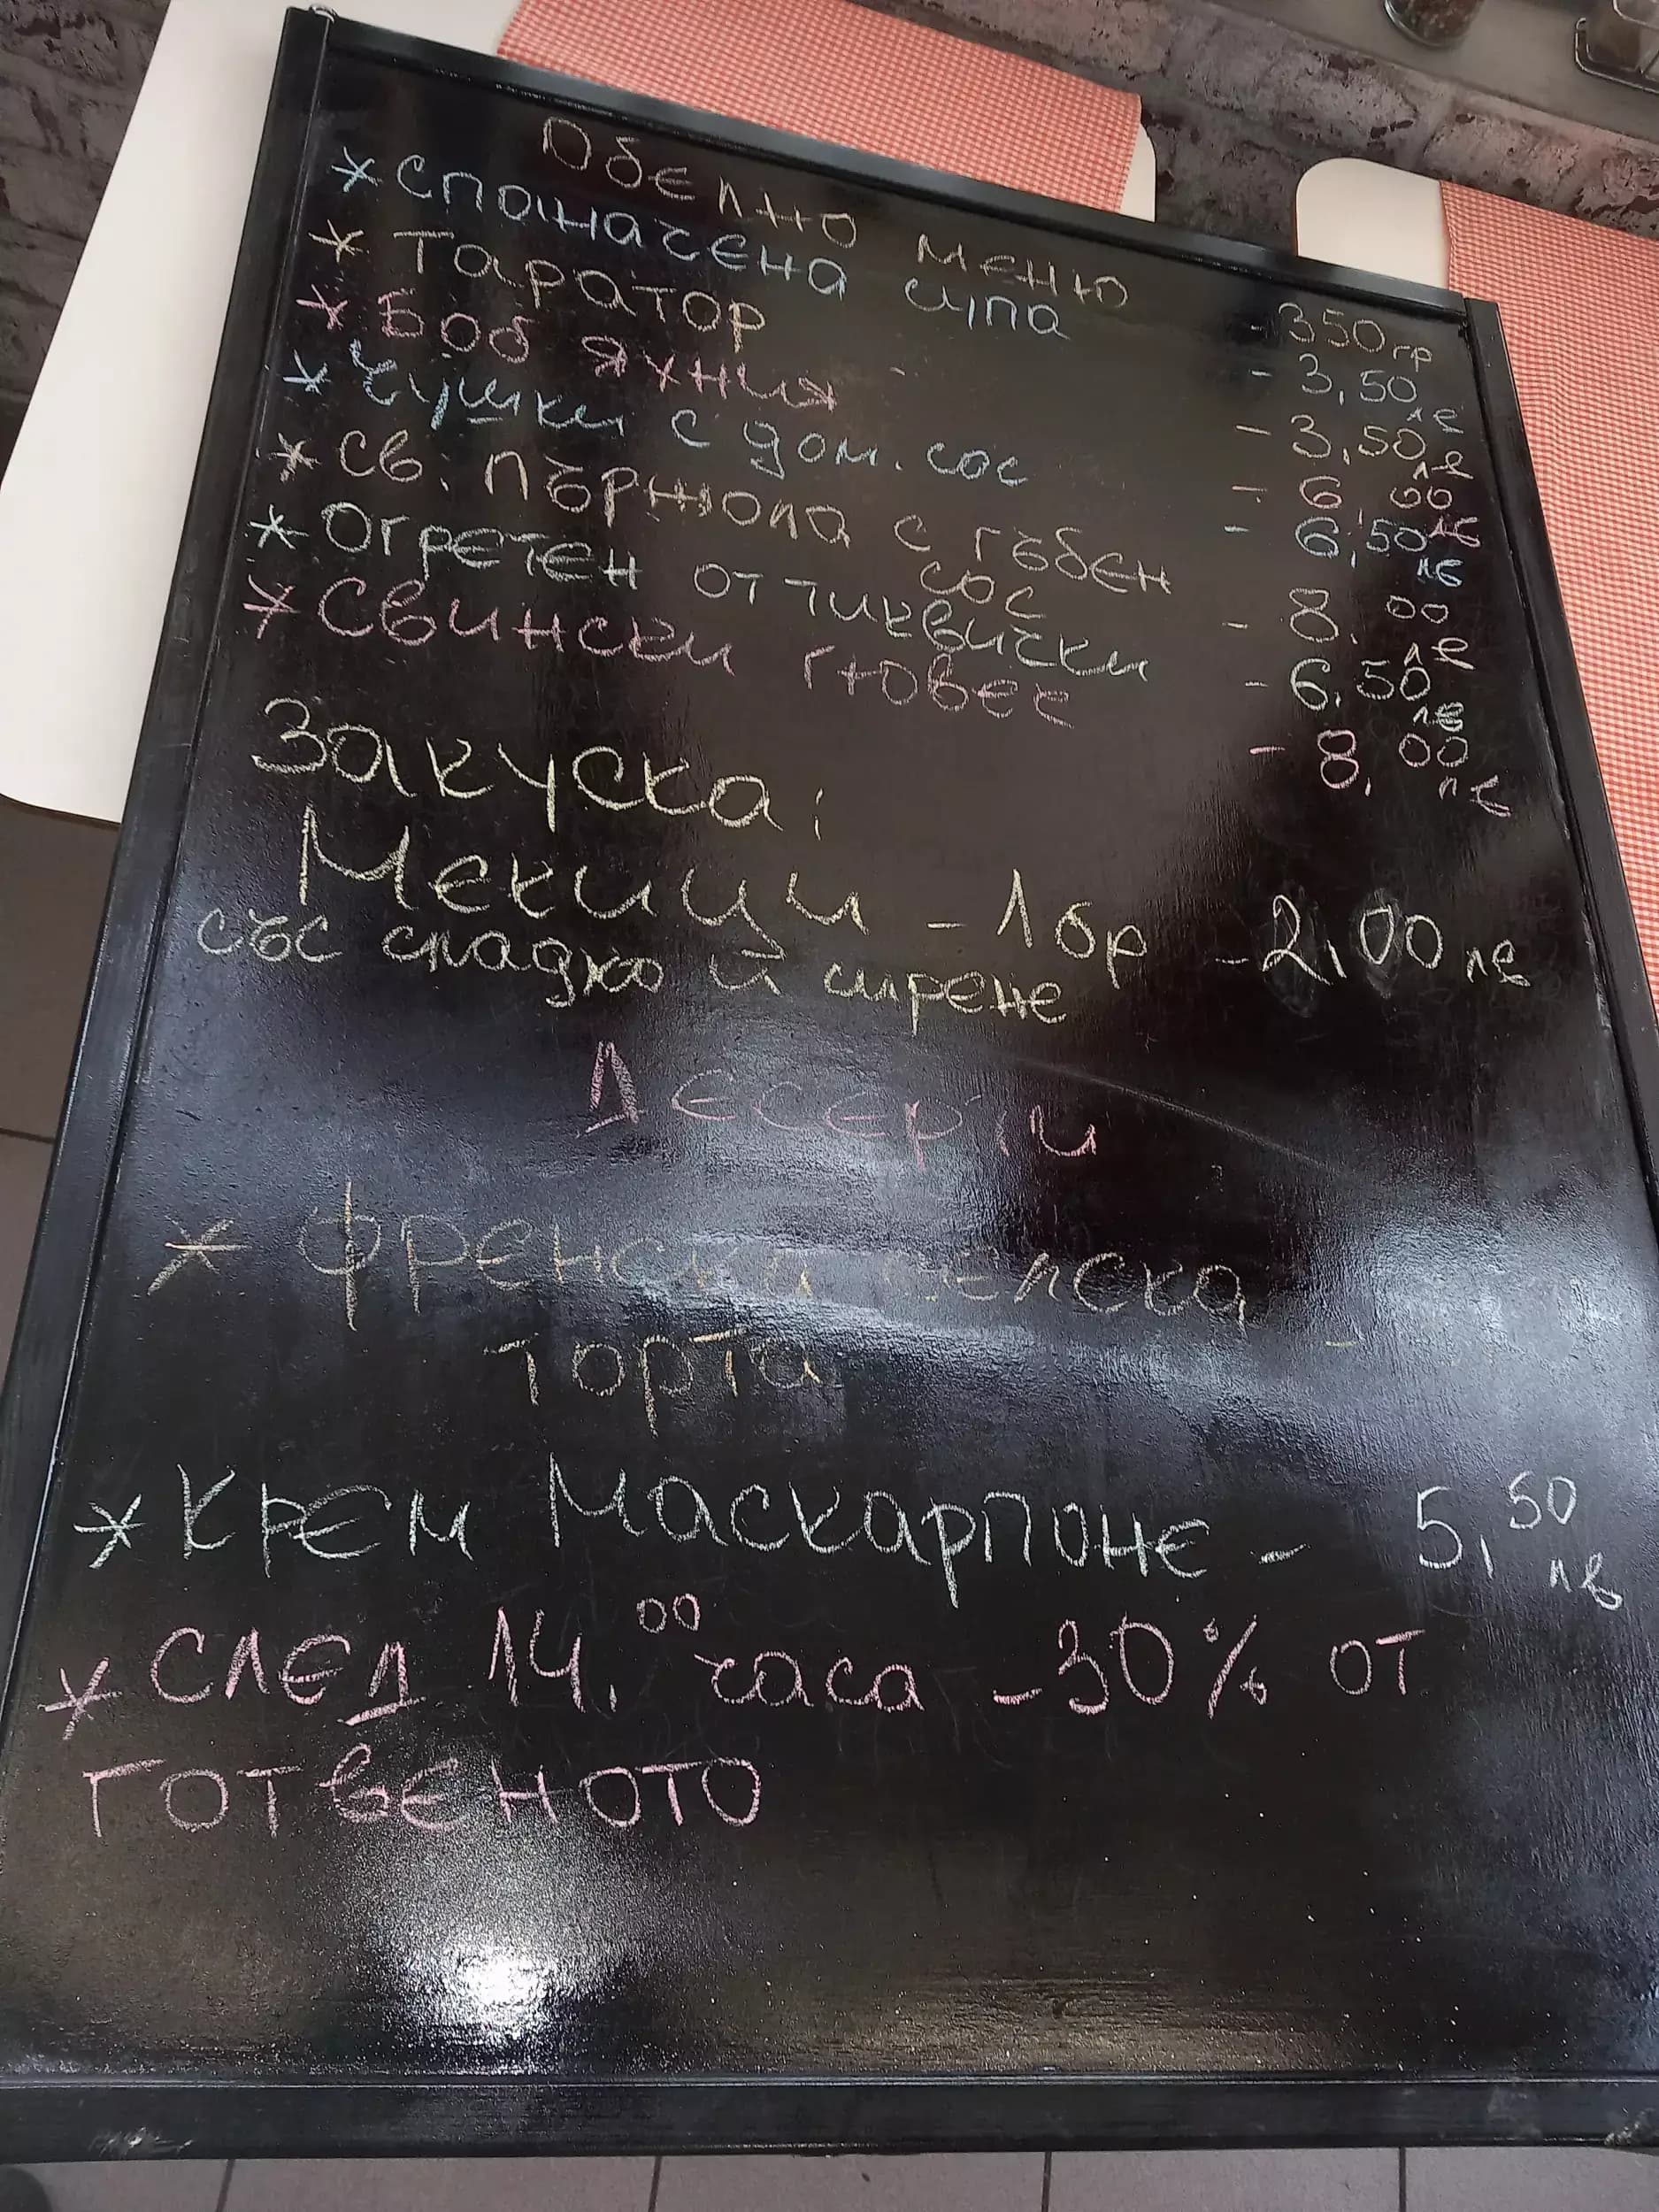 Обелно меню - 350гр
* Спаначена супа - 3,50 лв
* Таратор - 3,50 лв
* Боб яхния - 6,00 лв
* Чушки с дом. сос - 6,50 лв
* Св. пържола с гъбен сос - 8.00 лв
* Огретен от тиквички - 6.50 лв
* Свински гювеч - 8,00 лв
Закуска:
Мекици - 1бр - 2,00 лв
със сладко и сирене
Десерти
* Френска селска -
торта
* Крем Маскарпоне - 5,50 лв
* След 14.00 часа -30% от
готвеното